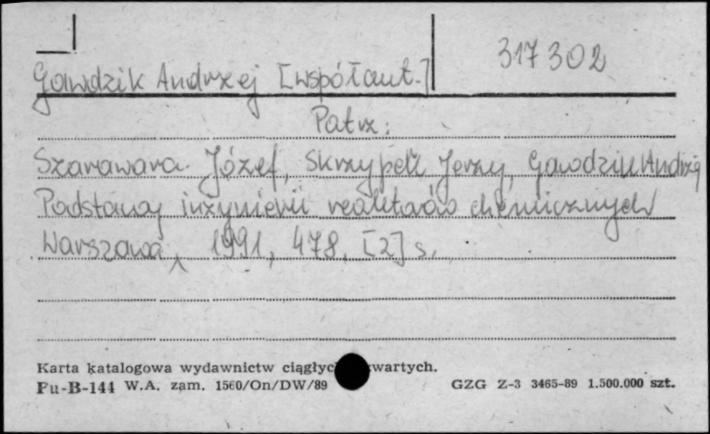 317302
Gawdzik Andrzej [współaut.]
Patrz:
Szarawara Józef, Skrzypek Jerzy, Gawdzik Andrzej
Podstawy inżynierii reaktorów chemicznych
Warszawa, 1991, 478, [2] s.
Karta katalogowa wydawnictw ciągłyc wartych.
Pu-B-144 W.A. zam. 1560/On/DW/89 GZG Z-3 3465-89 1.500.000 szt.